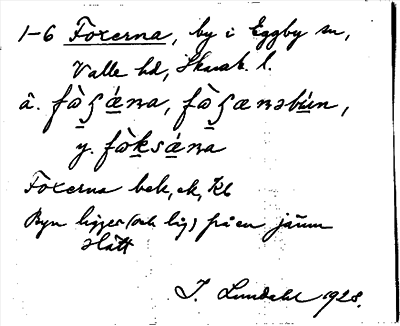 1-6 Foxerna, by i Eggby sn,
Valle hd, Skarab. l.
ä. fàʒ́ǽna, fàʒænəbún,
y. fòksǽna
Foxerna bek, ek, Kb
Byn ligger (och låg) på en jämn
slätt
J. Lundahl 1928.